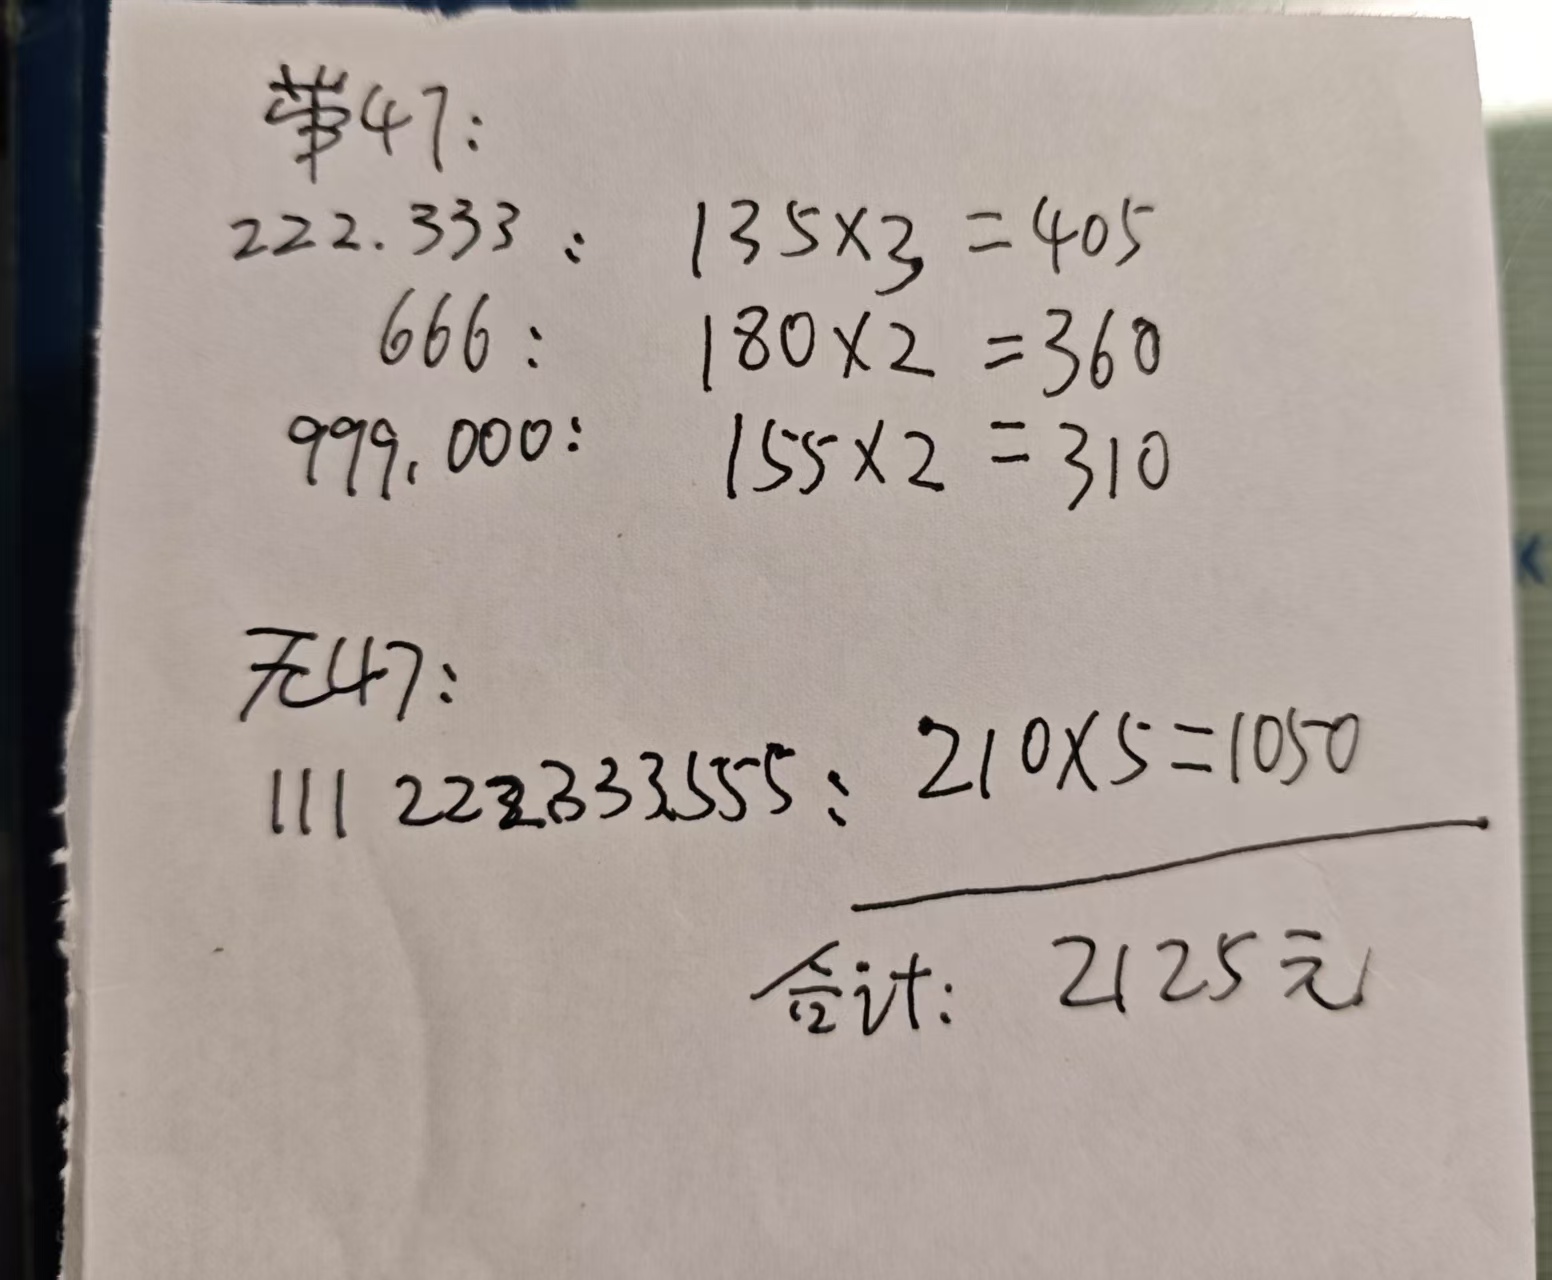 带47:
222.333: 135×3=405
666: 180×2=360
999.000: 155×2=310
无47:
111 222.333.555: 210×5=1050
合计: 2125元